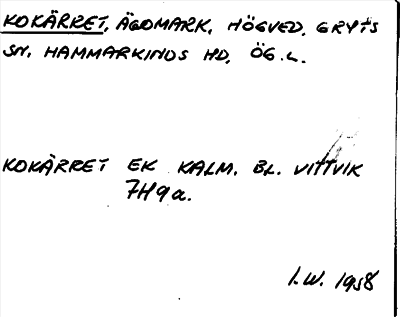 KOKÄRRET, ÄGOMARK, HÖGVED, GRYTS
SN, HAMMARKINDS HD, ÖG.L.
KOKÄRRET EK KALM. BL. VITTVIK
7H9a.
I.W. 1958